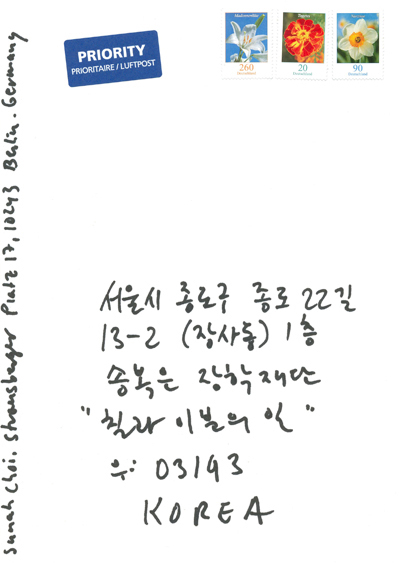 PRIORITY
PRIORITAIRE / LUFTPOST
Madonnenlilie
260
Deutschland
Tagetes
20
Deutschland
90
Deutschland
Sunah Choi. Strausberger Platz 17, 10243 Berlin. Germany
서울시 종로구 종로 22길
13-2 (장사동) 1층
송복은 장학재단
"칠라 이블의 일"
우: 03193
KOREA